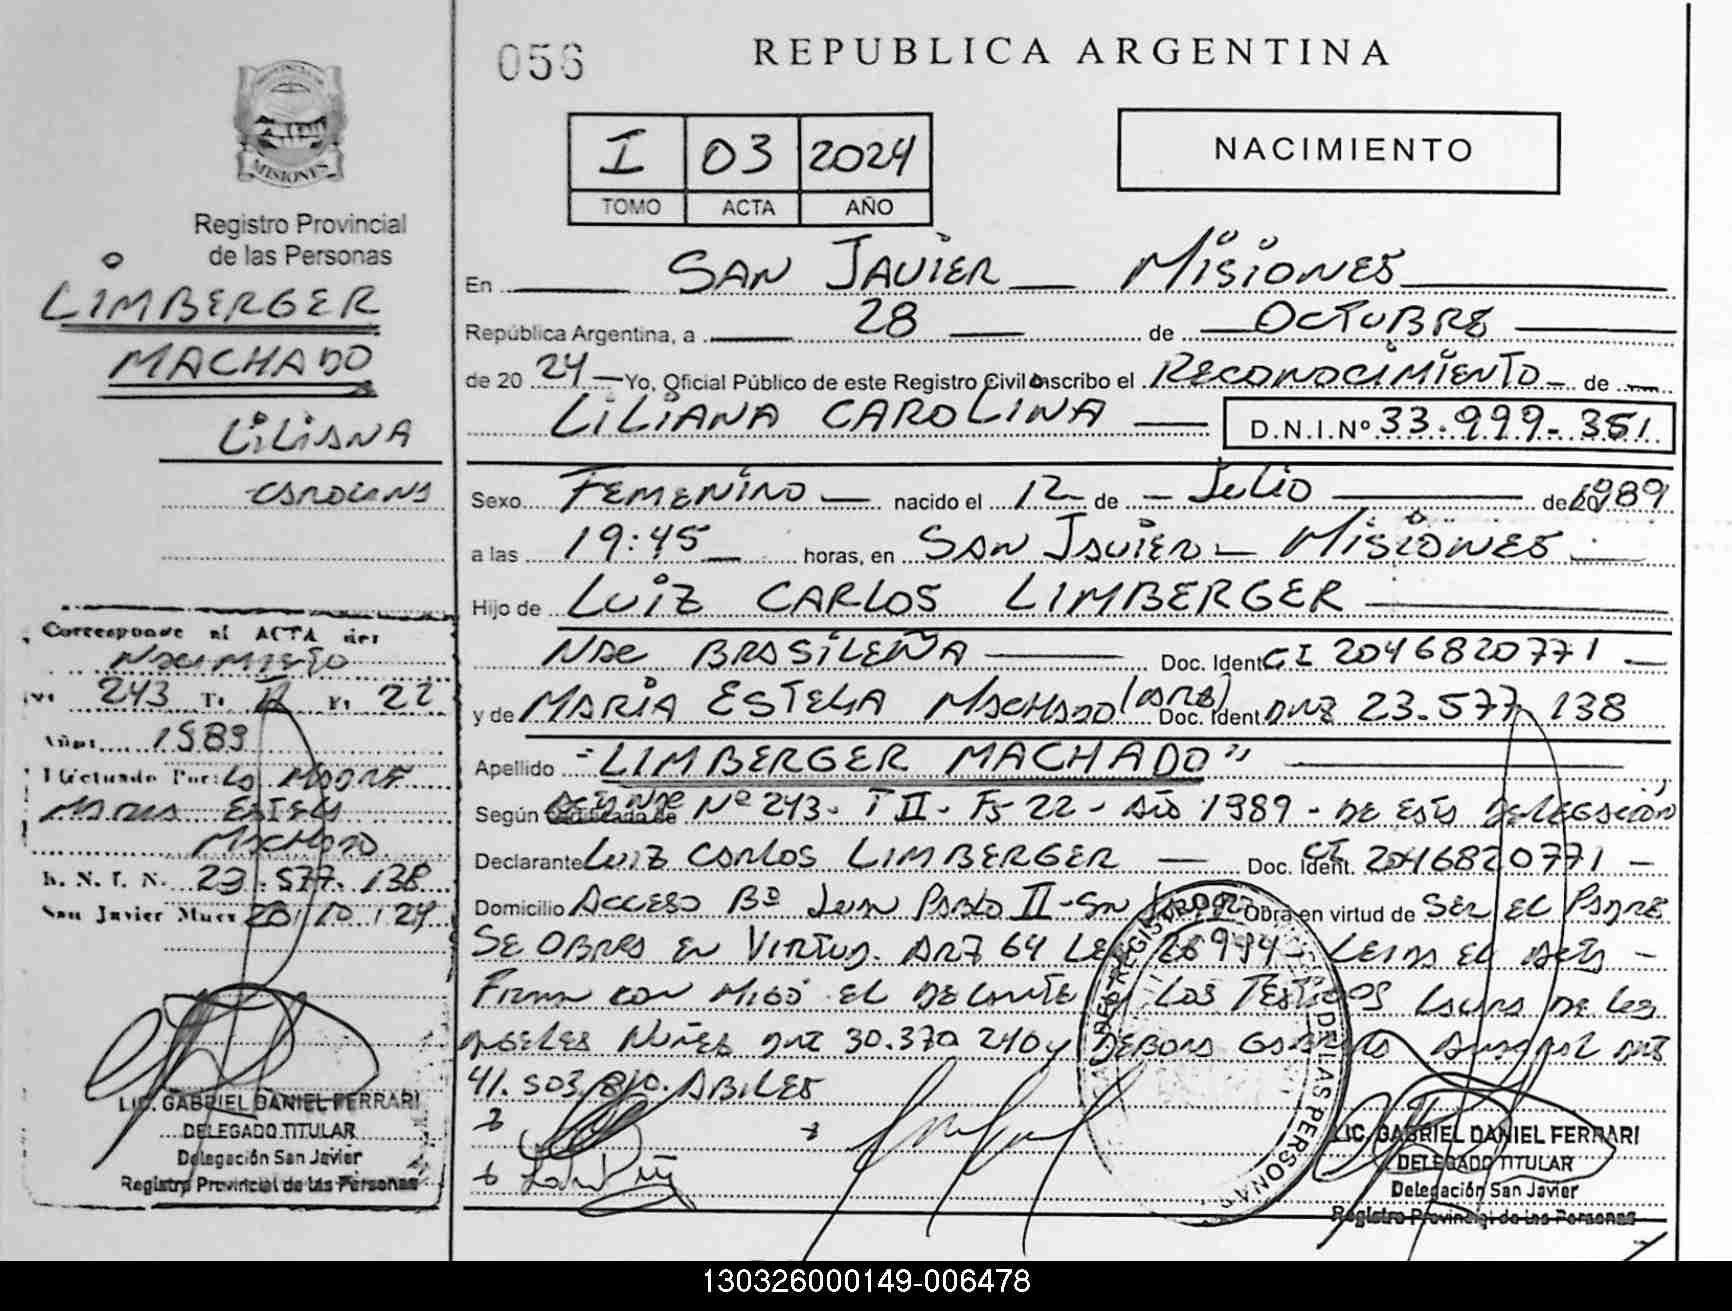 056
REPUBLICA ARGENTINA
PROVINCIA DE
MISIONES
I 03 2024
TOMO ACTA AÑO
NACIMIENTO
Registro Provincial
de las Personas
LIMBERGER
MACHADO
LILIANA
CAROLINA
En SAN JAVIER MISIONES
República Argentina, a 28 de OCTUBRE
de 20 24 Yo, Oficial Público de este Registro Civil inscribo el RECONOCIMIENTO de
LILIANA CAROLINA D.N.I.Nº 33.999.351
Sexo FEMENINO nacido el 12 de JULIO de 1989
a las 19:45 horas, en SAN JAVIER MISIONES
Hijo de LUIZ CARLOS LIMBERGER
NAC BRASILEÑA Doc. Ident CI 2046820771
y de MARIA ESTELA MACHADO (ARG) Doc. Ident DNI 23.577.138
Apellido "LIMBERGER MACHADO"
Según Nº 243 - T II - Fs 22 - Año 1989 - DE ESTA DELEGACION
Declarante LUIZ CARLOS LIMBERGER Doc. Ident. CI 2046820771
Domicilio ACCESO Bº JUAN PABLO II - SAN JAVIER Obra en virtud de SER EL PADRE
SE OBRA EN VIRTUD. ART 64 LEY 26994 LEIDA EL ACTA
FIRMA CON MIGO EL DECLARANTE Y LOS TESTIGOS LAURA DE LOS
ANGELES NUÑEZ DNI 30.370 240 y DEBORA DNI
41.503.810. ABILES
Corresponde al ACTA de:
NACIMIENTO
Nº 243 Tº II Fº 22
Año: 1989
Efectuado Por: LA MADRE
MARIA ESTELA
MACHADO
D. N. I. N. 23.577.138
San Javier Mnes 28/10/24
LIC. GABRIEL DANIEL FERRARI
DELEGADO TITULAR
Delegación San Javier
Registro Provincial de las Personas
LIC. GABRIEL DANIEL FERRARI
DELEGADO TITULAR
Delegación San Javier
Registro Provincial de las Personas
130326000149-006478